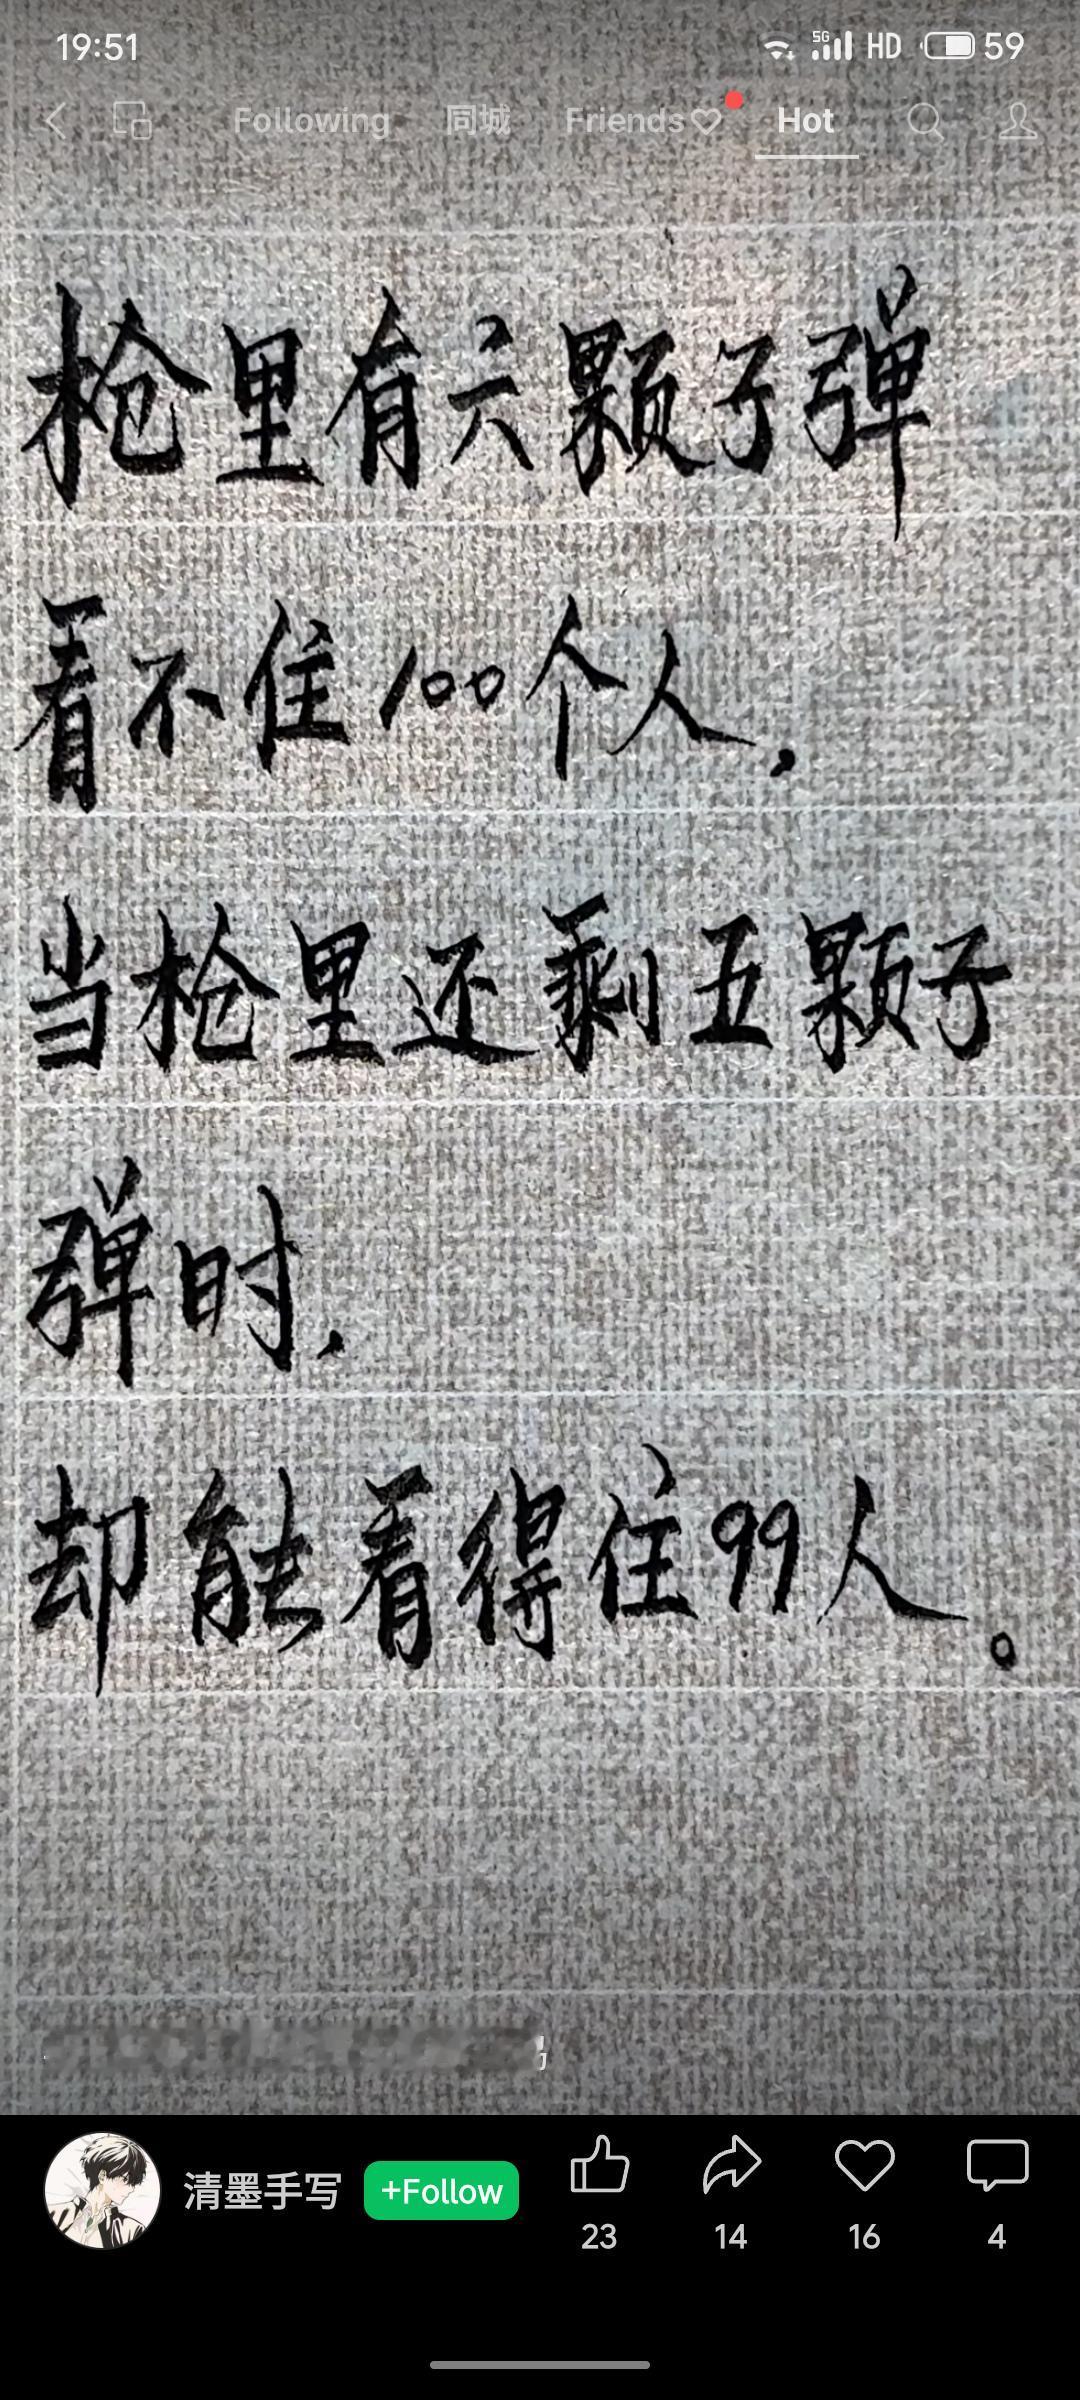 19:51
5G HD 59
Following 同城 Friends Hot
枪里有六颗子弹
看不住100个人,
当枪里还剩五颗子
弹时,
却能看得住99人。
清墨手写 +Follow
23 14 16 4